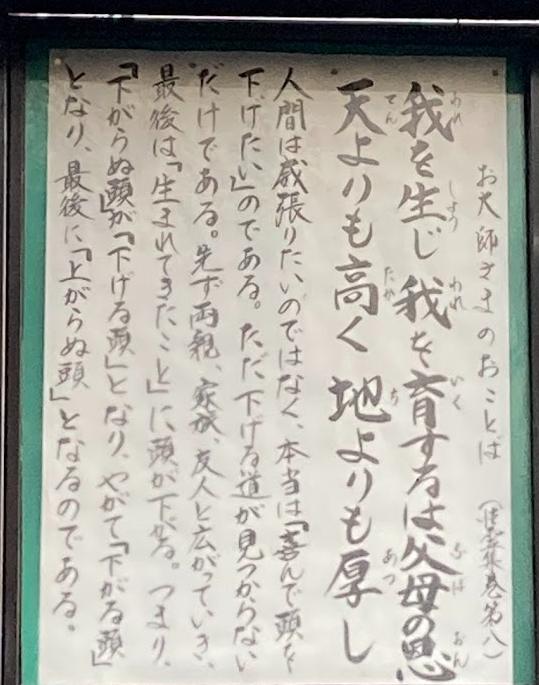 お大師さまのおことば (性霊集巻第八)
我を生じ 我を育するは父母の恩
天よりも高く 地よりも厚し
人間は威張りたいのではなく、本当は「喜んで頭を
下げたい」のである。ただ下げる道が見つからない
だけである。先ず両親、家族、友人と広がっていき、
最後は「生まれてきたこと」に頭が下がる。つまり、
「下がらぬ頭」が「下げる頭」となり、やがて「下がる頭」
となり、最後に「上がらぬ頭」となるのである。